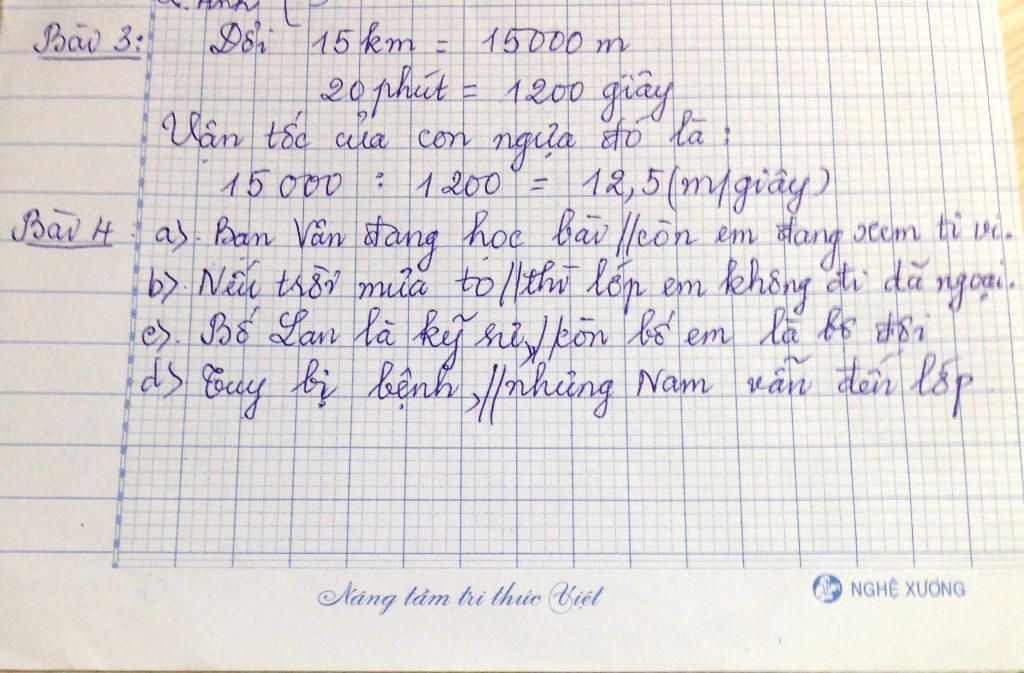 Bài 3: Đổi 15 km = 15000 m
20 phút = 1200 giây
Vận tốc của con ngựa đó là:
15 000 : 1200 = 12,5 (m/giây)
Bài 4: a). Bạn Vân đang học bài // còn em đang xem ti vi.
b). Nếu trời mưa to // thì lớp em không đi dã ngoại.
c). Bố Lan là kỹ sư, // còn bố em là bộ đội
d) Tuy bị bệnh, // nhưng Nam vẫn đến lớp
Nâng tầm tri thức Việt
NGHỆ XƯƠNG